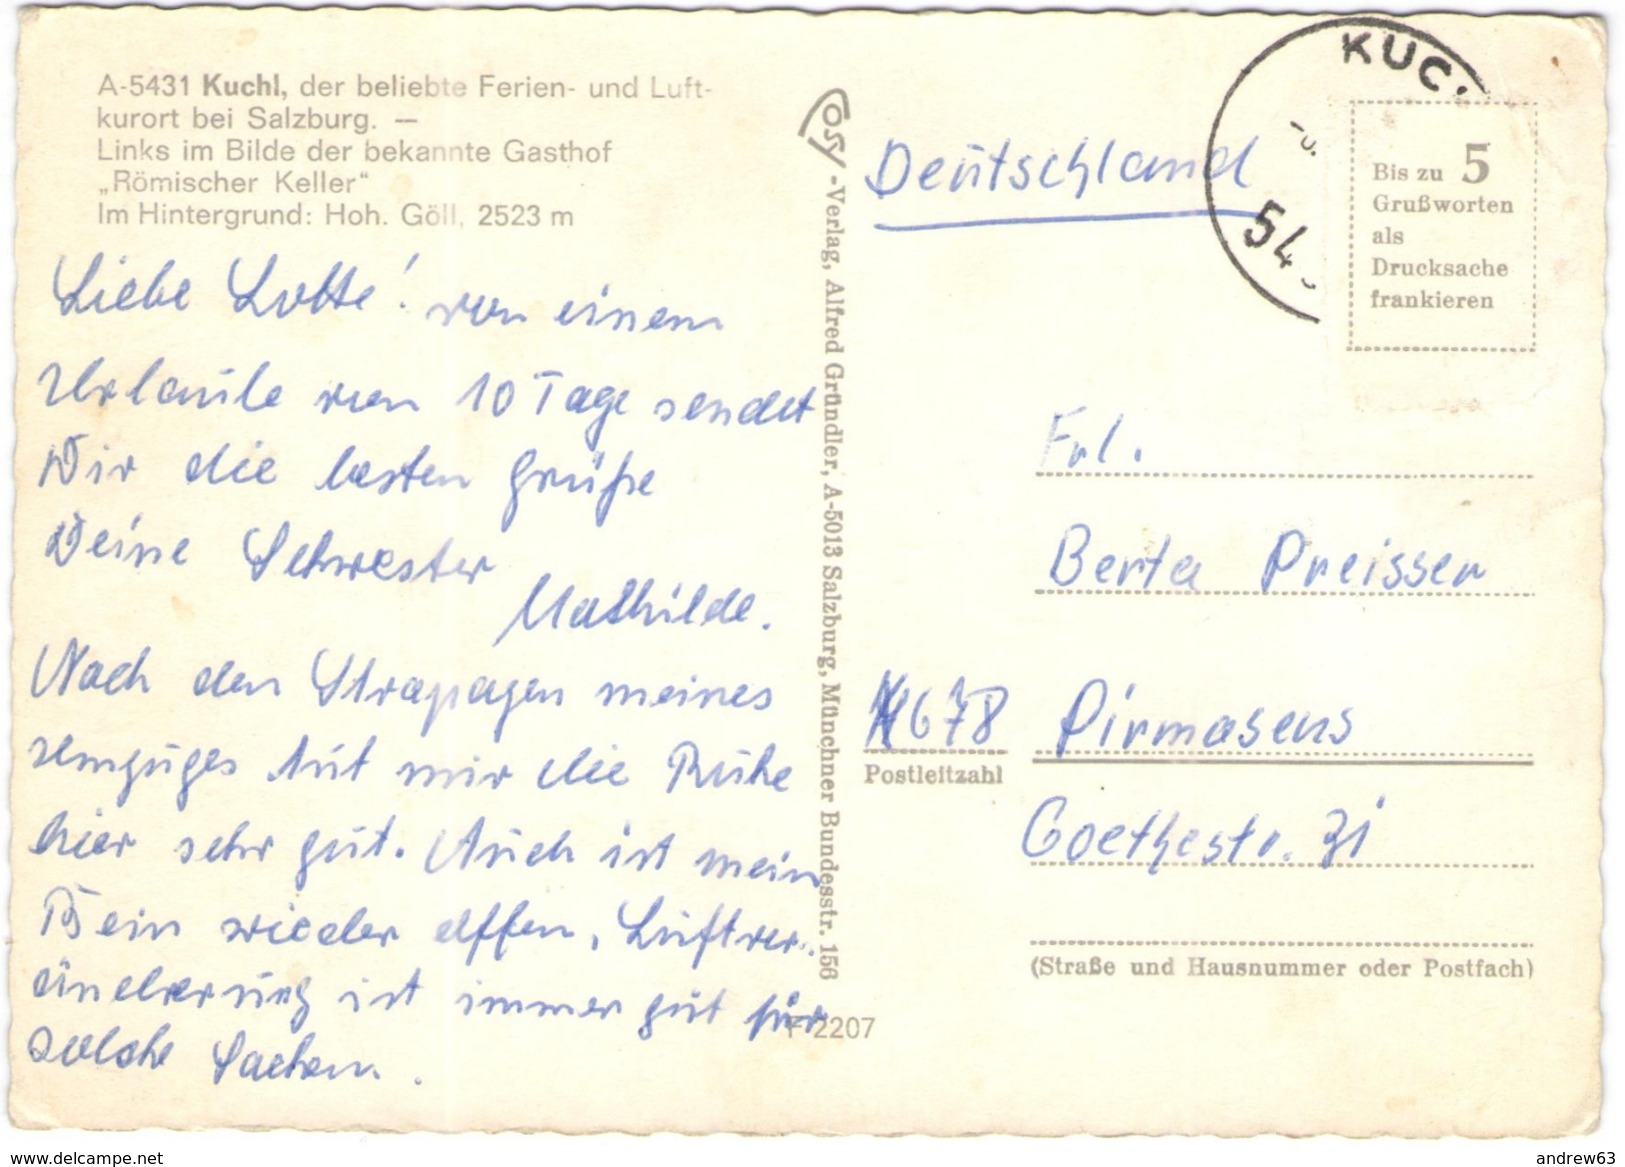 A-5431 Kuchl, der beliebte Ferien- und Luft-
kurort bei Salzburg. —
Links im Bilde der bekannte Gasthof
„Römischer Keller“
Im Hintergrund: Hoh. Göll, 2523 m
Liebe Lotte! von einem
Urlaube von 10 Tage sendet
Dir die besten Grüße
Deine Schwester
Mathilde.
Nach den Strapazen meines
Umzuges tut mir die Ruhe
hier sehr gut. Auch ist mein
Bein wieder offen, Luftver-
änderung ist immer gut für
solche Sachen.
Cosy-Verlag, Alfred Gründler, A-5013 Salzburg, Münchner Bundesstr. 156
F 2207
Deutschland
KUC
54
Bis zu 5
Grußworten
als
Drucksache
frankieren
Frl.
Berta Preisser
678 Pirmasens
Postleitzahl
Goethestr. 31
(Straße und Hausnummer oder Postfach)
delcampe.net
andrew63